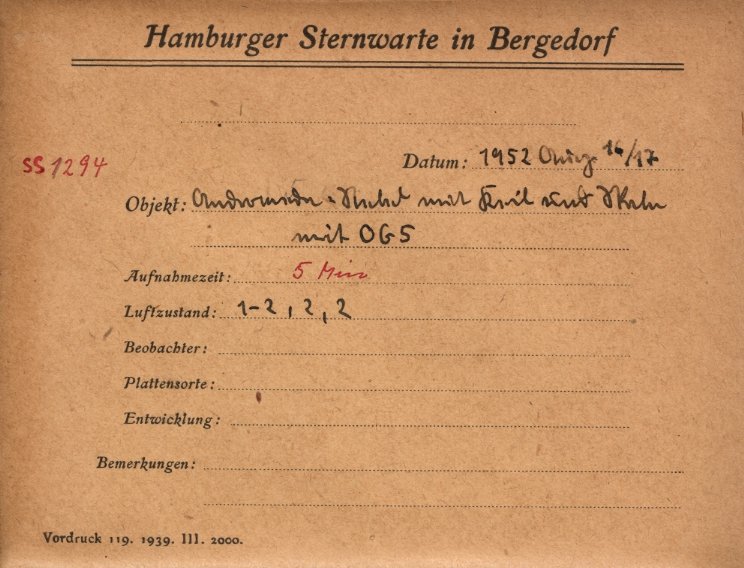 Hamburger Sternwarte in Bergedorf
SS 1294
Datum: 1952 Aug. 16/17
Objekt: Andromeda-Nebel mit Keil und
mit OG5
Aufnahmezeit: 5 Min
Luftzustand: 1-2, 2, 2
Beobachter:
Plattensorte:
Entwicklung:
Bemerkungen:
Vordruck 119. 1939. III. 2000.